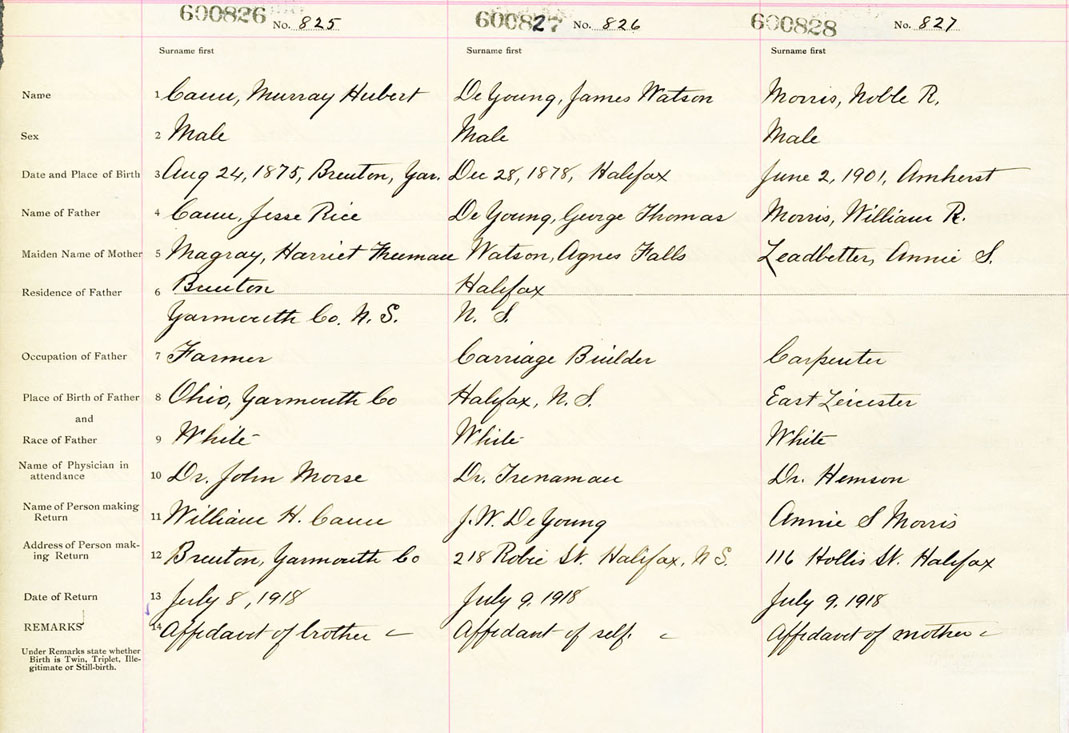 600826 No. 825 600827 No. 826 600828 No. 827
Surname first Surname first Surname first
Name 1 Cann, Murray Hubert De Young, James Watson Morris, Noble R.
Sex 2 Male Male Male
Date and Place of Birth 3 Aug 24, 1875, Brenton, Yar. Dec 28, 1878, Halifax June 2, 1901, Amherst
Name of Father 4 Cann, Jesse Rice De Young, George Thomas Morris, William R.
Maiden Name of Mother 5 Magray, Harriet Freeman Watson, Agnes Falls Leadbetter, Annie S.
Residence of Father 6 Brenton Halifax
Yarmouth Co. N. S. N. S.
Occupation of Father 7 Farmer Carriage Builder Carpenter
Place of Birth of Father 8 Ohio, Yarmouth Co Halifax, N. S. East Leicester
and
Race of Father 9 White White White
Name of Physician in
attendance 10 Dr. John Morse Dr. Trenaman Dr. Hemson
Name of Person making
Return 11 William H. Cann J. W. De Young Annie S Morris
Address of Person mak-
ing Return 12 Brenton, Yarmouth Co 218 Robie St. Halifax, N S. 116 Hollis St. Halifax
Date of Return 13 July 8, 1918 July 9, 1918 July 9, 1918
REMARKS 14 Affidavit of brother Affidavit of self. Affidavit of mother
Under Remarks state whether
Birth is Twin, Triplet, Ille-
gitimate or Still-birth.